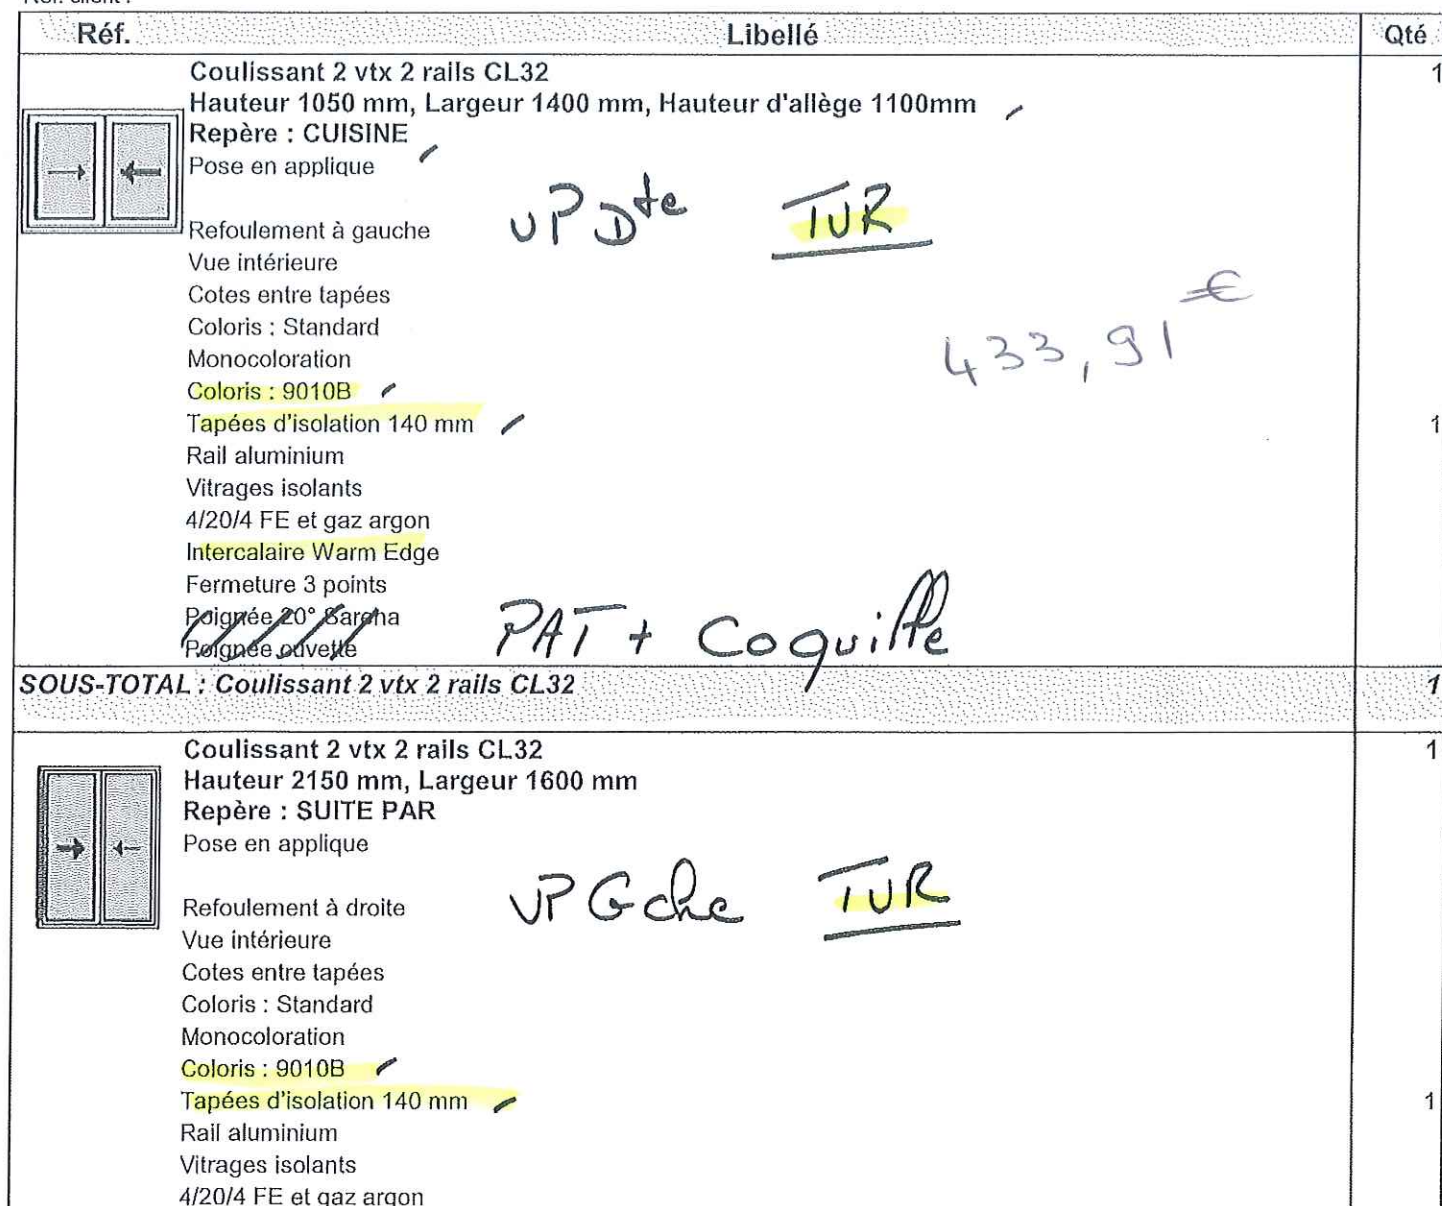 Réf. Libellé Qté
Coulissant 2 vtx 2 rails CL32 1
Hauteur 1050 mm, Largeur 1400 mm, Hauteur d'allège 1100mm
Repère : CUISINE
Pose en applique
VP Dte TUR
Refoulement à gauche
Vue intérieure
Cotes entre tapées
Coloris : Standard
433,91 €
Monocoloration
Coloris : 9010B
Tapées d'isolation 140 mm 1
Rail aluminium
Vitrages isolants
4/20/4 FE et gaz argon
Intercalaire Warm Edge
Fermeture 3 points
Poignée 20° Sareha
Poignée cuvette
PAT + Coquille
SOUS-TOTAL : Coulissant 2 vtx 2 rails CL32 1
Coulissant 2 vtx 2 rails CL32 1
Hauteur 2150 mm, Largeur 1600 mm
Repère : SUITE PAR
Pose en applique
VP Gche TUR
Refoulement à droite
Vue intérieure
Cotes entre tapées
Coloris : Standard
Monocoloration
Coloris : 9010B
Tapées d'isolation 140 mm 1
Rail aluminium
Vitrages isolants
4/20/4 FE et gaz argon